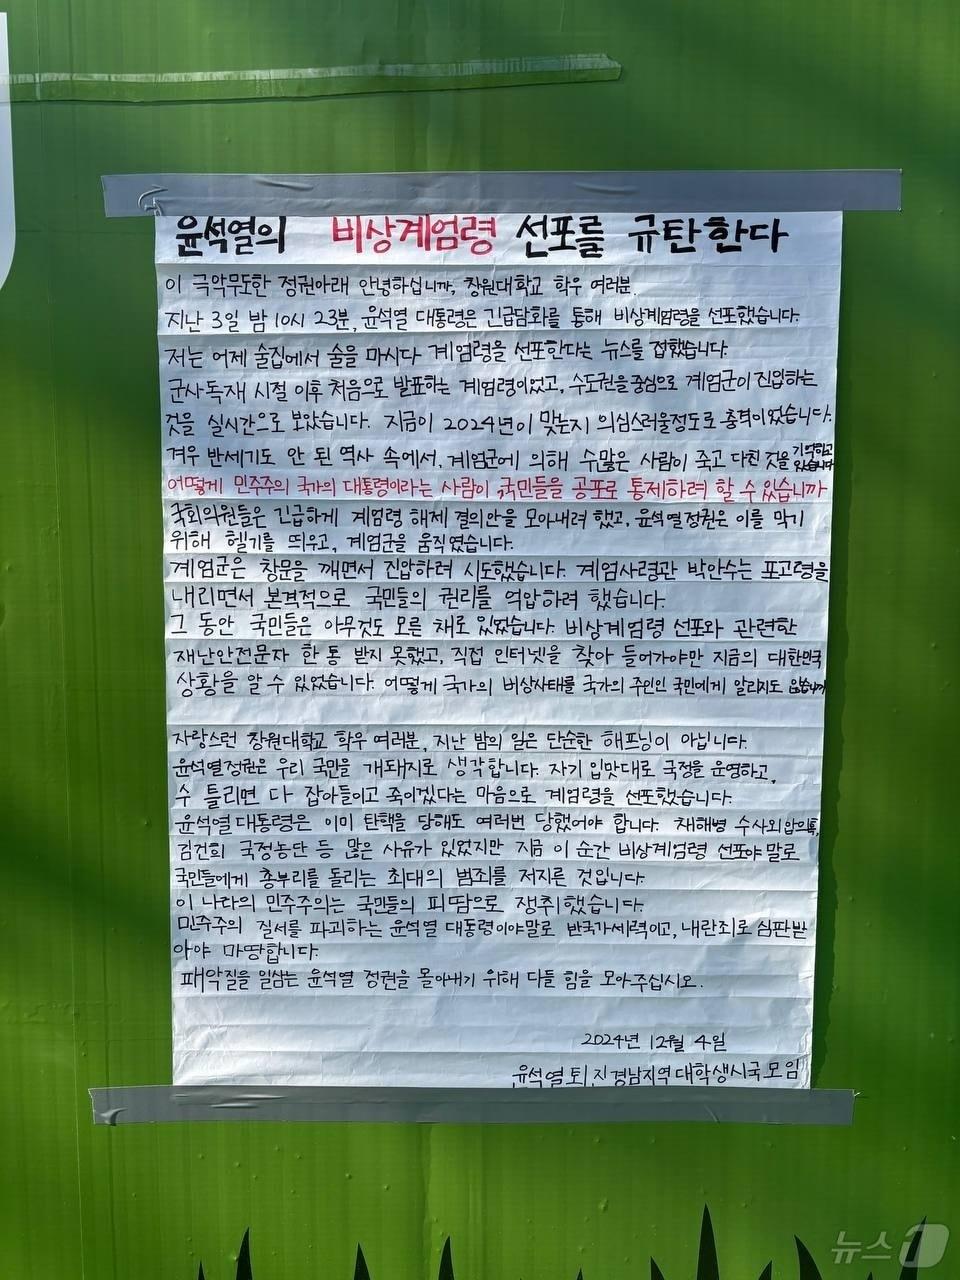 윤석열의 비상계엄령 선포를 규탄한다
이 극악무도한 정권아래 안녕하십니까, 창원대학교 학우 여러분.
지난 3일 밤 10시 23분, 윤석열 대통령은 긴급담화를 통해 비상계엄령을 선포했습니다.
저는 어제 술집에서 술을 마시다 계엄령을 선포한다는 뉴스를 접했습니다.
군사독재 시절 이후 처음으로 발표하는 계엄령이었고, 수도권을 중심으로 계엄군이 진입하는
것을 실시간으로 보았습니다. 지금이 2024년이 맞는지 의심스러울정도로 충격이었습니다.
겨우 반세기도 안 된 역사 속에서, 계엄군에 의해 수많은 사람이 죽고 다친 것을 기억하고 있습니다
어떻게 민주주의 국가의 대통령이라는 사람이, 국민들을 공포로 통제하려 할 수 있습니까
국회의원들은 긴급하게 계엄령 해제 결의안을 모아내려 했고, 윤석열정권은 이를 막기
위해 헬기를 띄우고, 계엄군을 움직였습니다.
계엄군은 창문을 깨면서 진압하려 시도했습니다. 계엄사령관 박안수는 포고령을
내리면서 본격적으로 국민들의 권리를 억압하려 했습니다.
그 동안 국민들은 아무것도 모른 채로 있었습니다. 비상계엄령 선포와 관련한
재난안전문자 한 통 받지 못했고, 직접 인터넷을 찾아 들어가야만 지금의 대한민국
상황을 알 수 있었습니다. 어떻게 국가의 비상사태를 국가의 주인인 국민에게 알리지도 않습니까
자랑스런 창원대학교 학우 여러분, 지난 밤의 일은 단순한 해프닝이 아닙니다.
윤석열정권은 우리 국민을 개돼지로 생각합니다. 자기 입맛대로 국정을 운영하고,
수 틀리면 다 잡아들이고 죽이겠다는 마음으로 계엄령을 선포했습니다.
윤석열대통령은 이미 탄핵을 당해도 여러번 당했어야 합니다. 채해병 수사외압의혹,
김건희 국정농단 등 많은 사유가 있었지만 지금 이 순간 비상계엄령 선포야 말로
국민들에게 총부리를 돌리는 최대의 범죄를 저지른 것입니다.
이 나라의 민주주의는 국민들의 피땀으로 쟁취했습니다.
민주주의 질서를 파괴하는 윤석열 대통령이야말로 반국가세력이고, 내란죄로 심판받
아야 마땅합니다.
패악질을 일삼는 윤석열 정권을 몰아내기 위해 다들 힘을 모아주십시오.
2024년 12월 4일
윤석열퇴진경남지역대학생시국모임
뉴스1